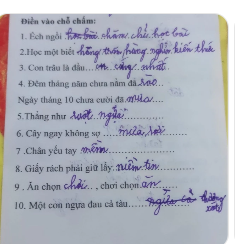 Điền vào chỗ chấm:
1. Ếch ngồi lười chăm chỉ học bài
2.Học một biết hổng trốn hàng nghìn kiến thức
3. Con trâu là đầu...
4. Đêm tháng năm chưa nằm đã rào...
Ngày tháng 10 chưa cười đã mưa...
5.Thẳng như ruột ngựa
6. Cây ngay không sợ .... mưa rơi ...
7 .Chân yếu tay mềm...
8. Giấy rách phải giữ lấy niềm tin...
9 . Ăn chọn chơi... , chơi chọn ăn...
10. Một con ngựa đau cả tàu